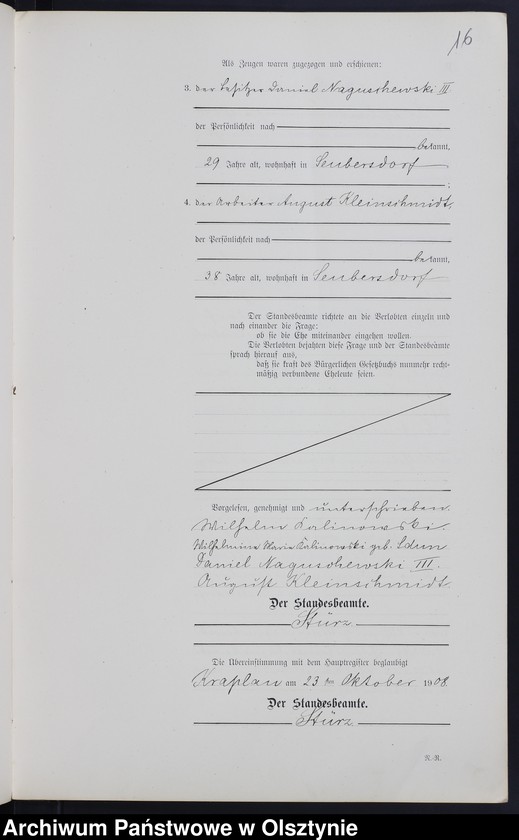 16
Als Zeugen waren zugezogen und erschienen:
3. der Besitzer Daniel Naguschewski III
der Persönlichkeit nach
bekannt,
29 Jahre alt, wohnhaft in Seubersdorf
;
4. der Arbeiter August Kleinschmidt,
der Persönlichkeit nach
bekannt,
38 Jahre alt, wohnhaft in Seubersdorf
Der Standesbeamte richtete an die Verlobten einzeln und
nach einander die Frage:
ob sie die Ehe miteinander eingehen wollen.
Die Verlobten bejahten diese Frage und der Standesbeamte
sprach hierauf aus,
daß sie kraft des Bürgerlichen Gesetzbuchs nunmehr recht-
mäßig verbundene Eheleute seien.
Vorgelesen, genehmigt und unterschrieben.
Wilhelm Kalinowski.
Wilhelmine Marie Kalinowski geb. Sdun
Daniel Naguschewski III.
August Kleinschmidt.
Der Standesbeamte.
Stürz.
Die Übereinstimmung mit dem Hauptregister beglaubigt
Kraplau am 23 ten Oktober 1908.
Der Standesbeamte.
Stürz.
N.-R.
Archiwum Państwowe w Olsztynie